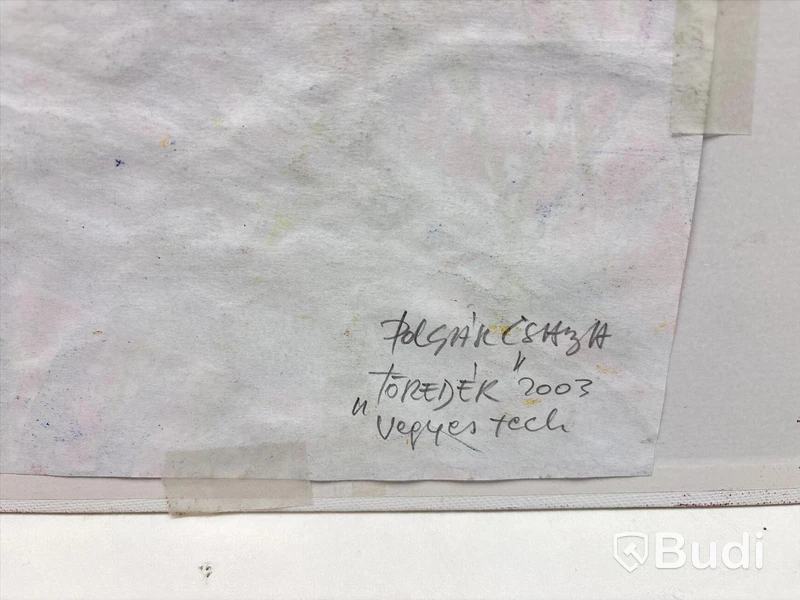 POLGÁR CSABA
„TÖREDÉK” 2003
Vegyes tech
Budi